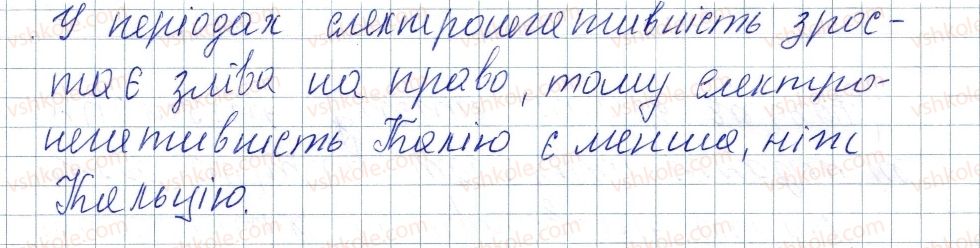 У періодах електронегативність зрос-
тає зліва на право, тому електро-
негативність Калію є менша, ніж
Кальцію.